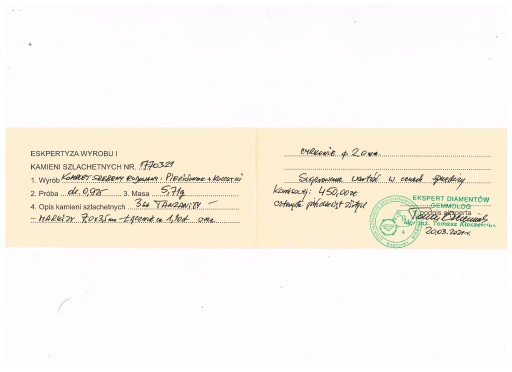 ESKPERTYZA WYROBU I
KAMIENI SZLACHETNYCH NR. 1770321
1. Wyrób KOMPLET SREBRNY RODOWANY: PIERŚCIONEK + KOLCZYKI
2. Próba Ag 0,925 3. Masa 5,71g
4. Opis kamieni szlachetnych 3szt TANZANITY –
– MARKIZY 7,0x3,5mm – ŁĄCZNIE ca 1,10ct oraz
CYRKONIE φ 2.0mm.
Sugerowana wartość w cenach sprzedaży
komisowej: 450,00zł
czterysta pięćdziesiąt złotych
EKSPERT DIAMENTÓW
GEMMOLOG
podpis eksperta
mgr inż. Tomasz Kłoczewiak
20.03.2021r.